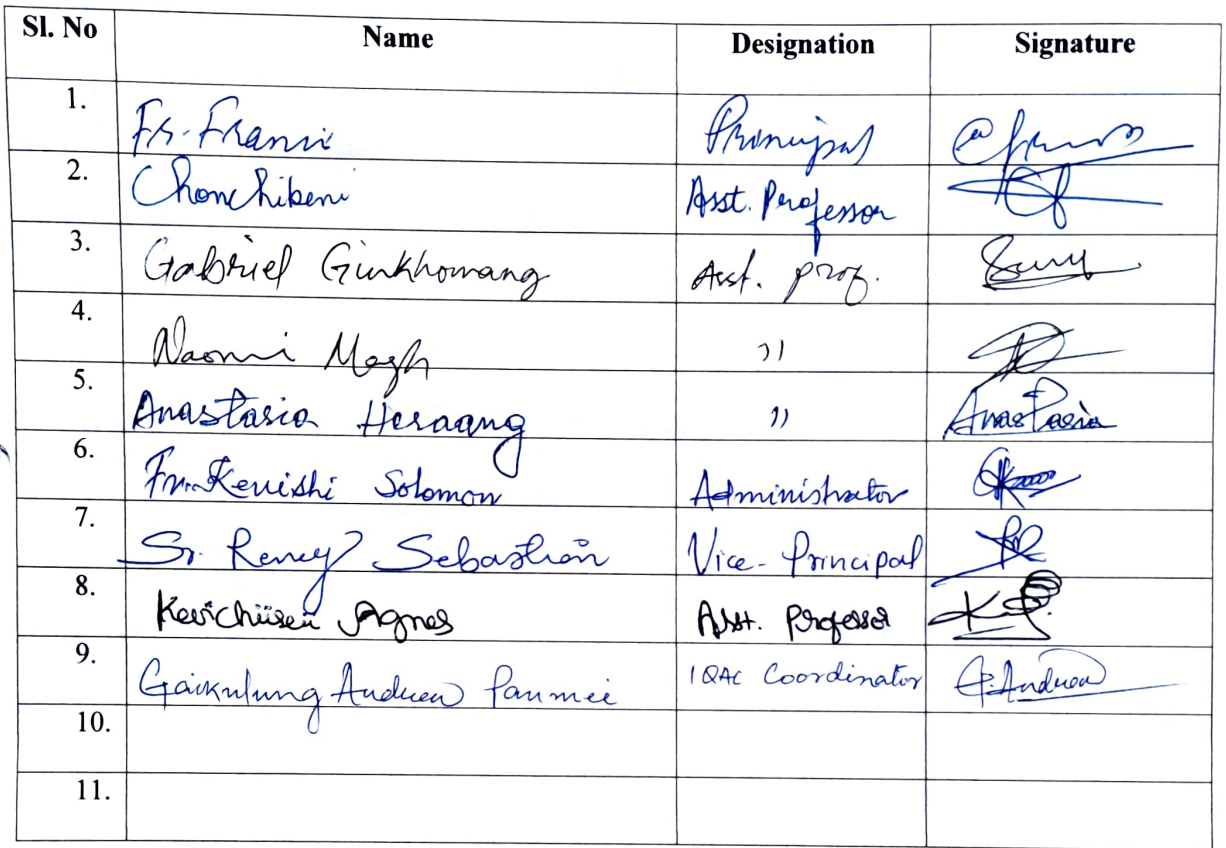 Sl. No Name Designation Signature
1. Fr. Francis Principal
2. Chonchibeni Asst. Professor
3. Gabriel Ginkhomang Asst. prof.
4. Naomi Magh ))
5. Anastasia Heraang )) Anastasia
6. Fr. Kevishi Solomon Administrator
7. Sr. Rency Sebastian Vice-Principal
8. Kevichüseü Agnes Asst. Professor
9. Gaikulung Andrew Panmei IQAC Coordinator G. Andrew
10.
11.